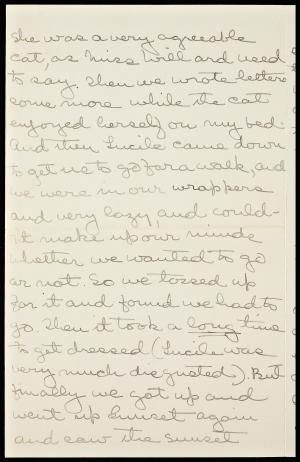 she was a very agreeable
cat, as Miss Willard used
to say. Then we wrote letters
some more while the cat
enjoyed herself on my bed.
And then Lucile came down
to get us to go for a walk, and
we were in our wrappers
and very lazy, and could-
n't make up our minds
whether we wanted to go
or not. So we tossed up
for it and found we had to
go. Then it took a long time
to get dressed (Lucile was
very much disgusted). But
finally we got up and
went up Sunset again
and saw the sunset